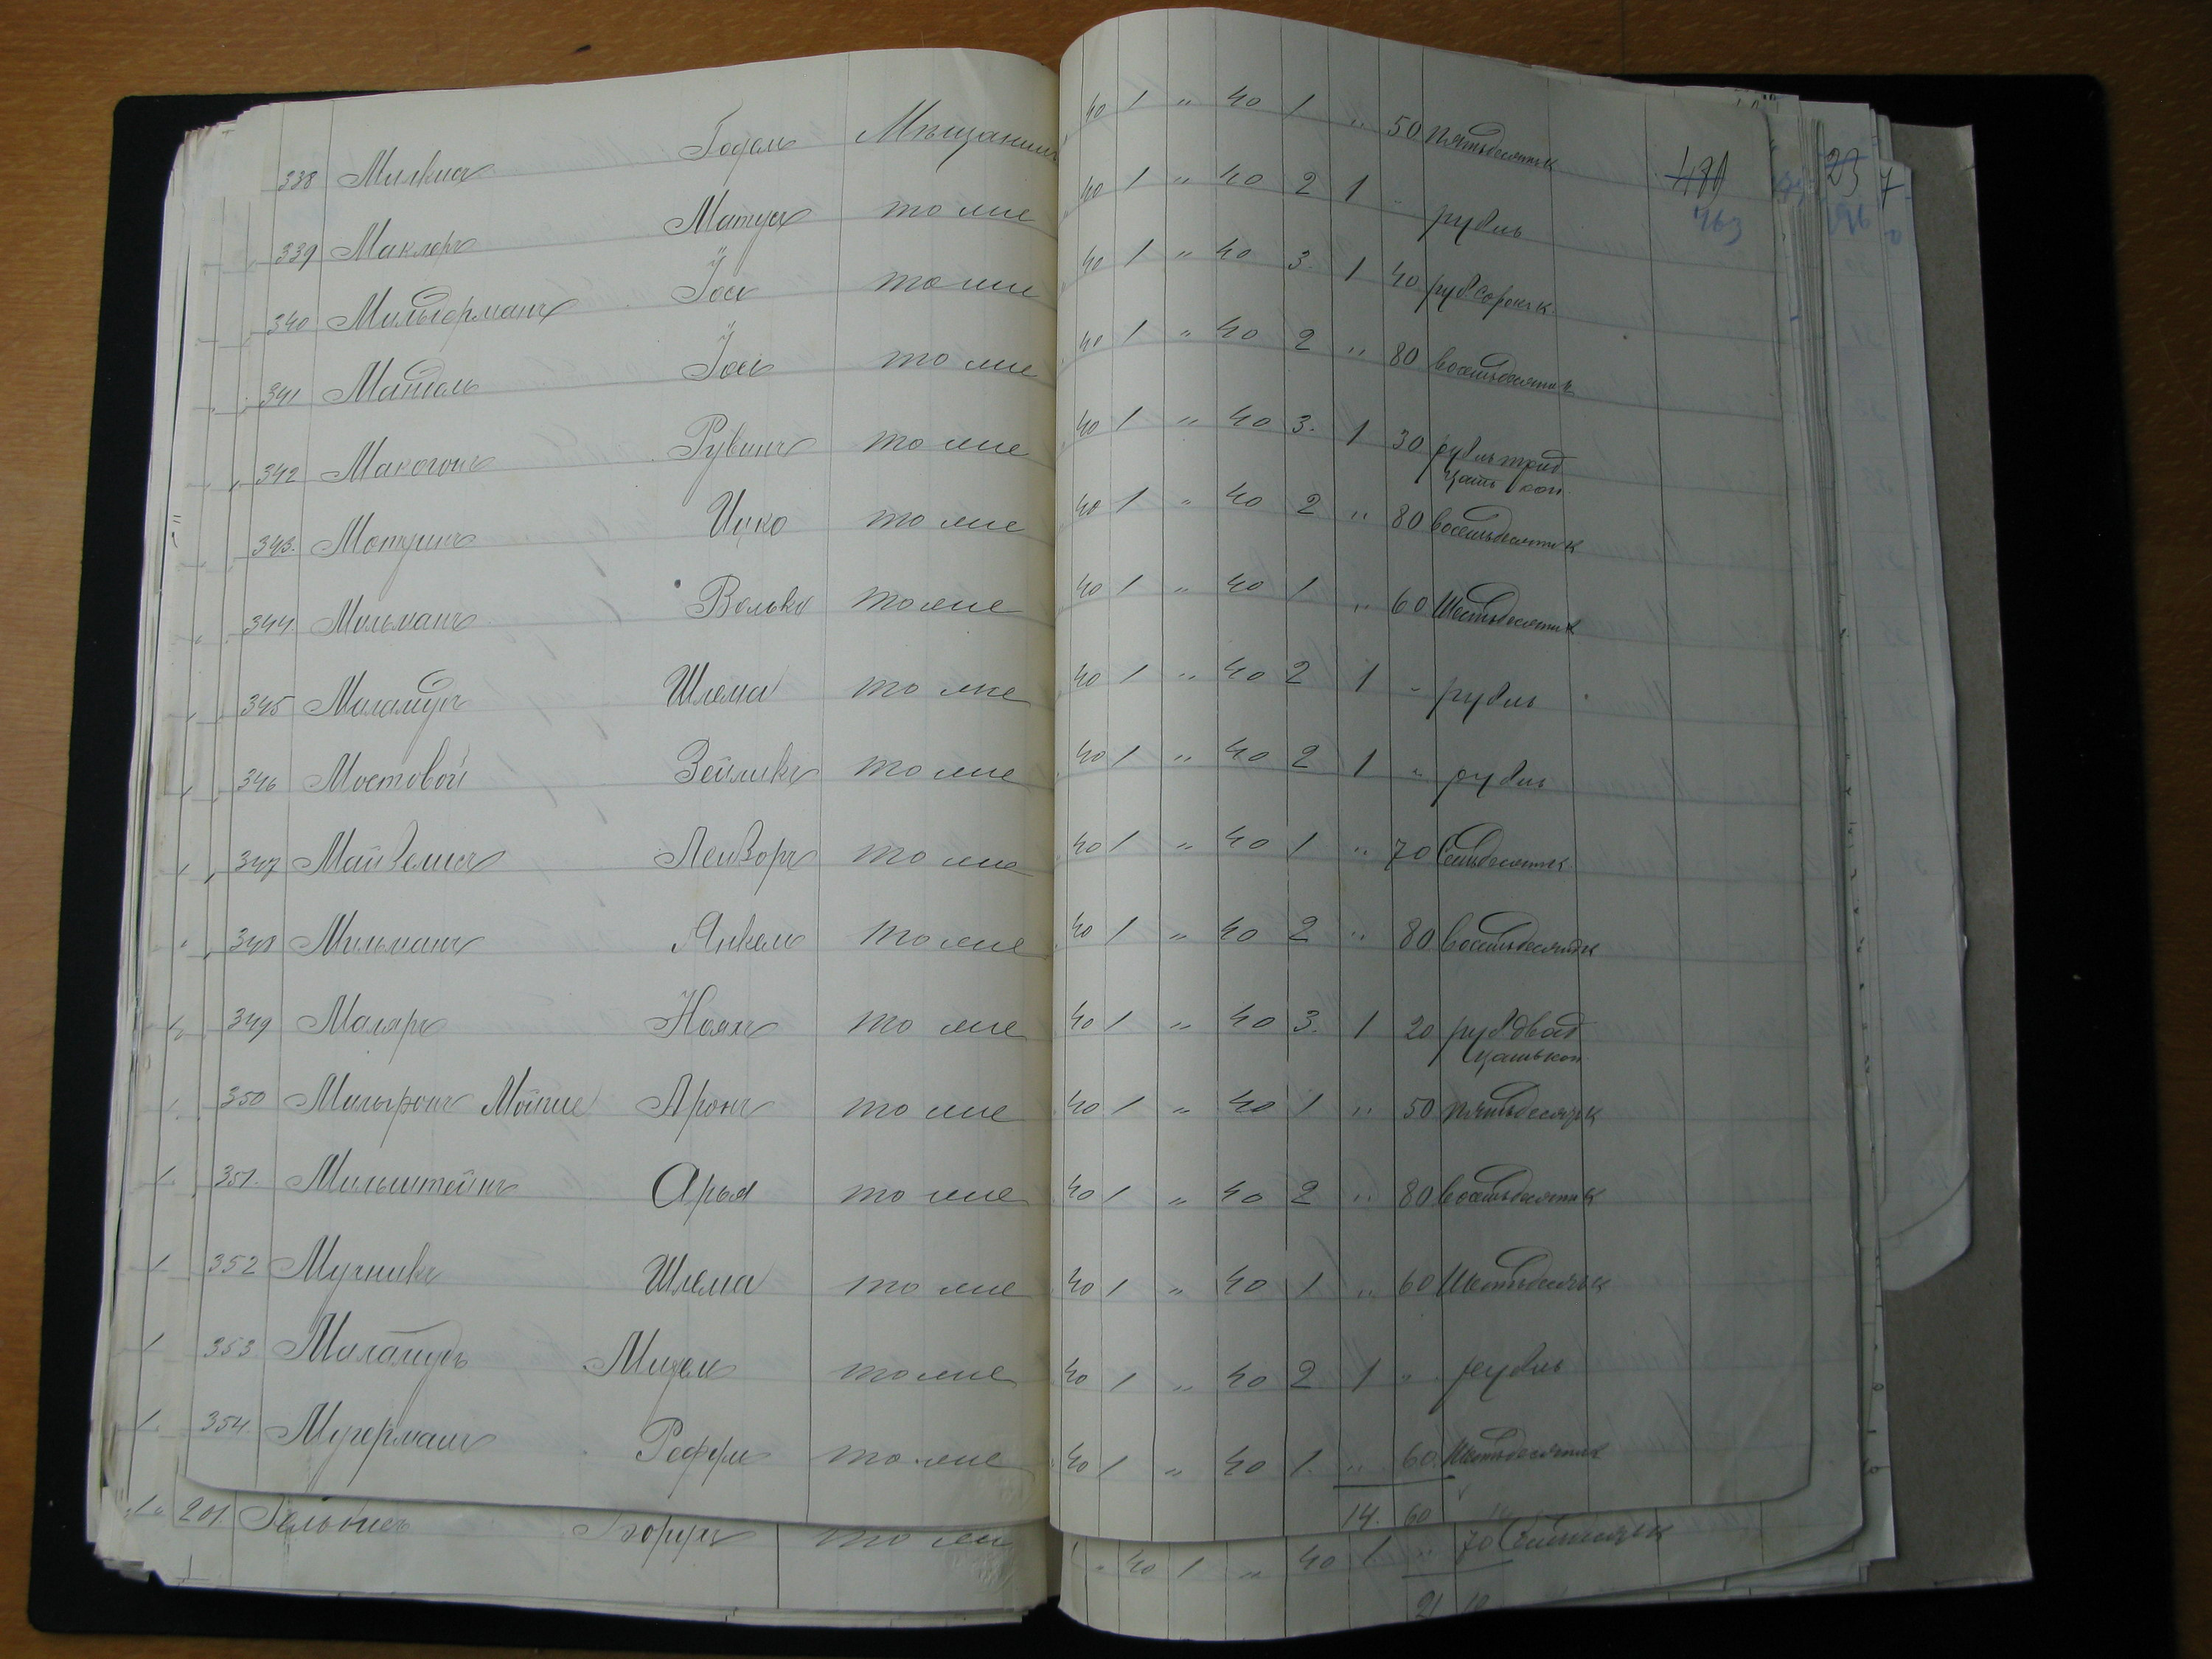 338 Милкисъ Годель Мѣщанинъ 40 1 " 40 1 " 50 пятьдесятъ к 480
463
339 Маклеръ Матусъ то же 40 1 " 40 2 1 " рубль
340 Мильгерманъ Іось то же 40 1 " 40 3. 1 40 руб сорокъ к.
341 Мандель Іось то же 40 1 " 40 2 " 80 восемьдесятъ к
342 Макогонъ Рувинъ то же 40 1 " 40 3. 1 30 рубль трид
цать коп.
343. Мотринъ Ицко то же 40 1 " 40 2 " 80 восемьдесятъ к
344 Мильманъ Волько то же 40 1 " 40 1 " 60 Шестьдесятъ к
345 Меламудъ Шлема то же 40 1 " 40 2 1 " рубль
346 Мостовой Зейликъ то же 40 1 " 40 2 1 " рубль
347 Лейзоръ то же 40 1 " 40 1 " 70 Семьдесятъ к
348 Мильманъ Янкель то же 40 1 " 40 2 " 80 восемьдесятъ к
349 Маляръ то же 40 1 " 40 3. 1 20 руб двад
цать коп
350 Мильгромъ Аронъ то же 40 1 " 40 1 " 50 пятьдесятъ к
351. Мильштейнъ Арья то же 40 1 " 40 2 " 80 восемьдесятъ к
1 352 Мучникъ Шлема то же 40 1 " 40 1 " 60 Шестьдесятъ к
1 353 Меламудъ Михель то же 40 1 " 40 2 1 " рубль
1. 354. Мугерманъ то же 40 1 " 40 1. " 60. Шестьдесятъ к
14. 60
1 201. то же 40 1 " 40 1 " 70 Семьдесятъ к
21 10